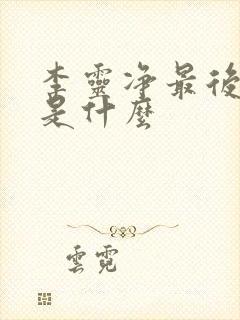 李靈净最後
是什麼
雲霓